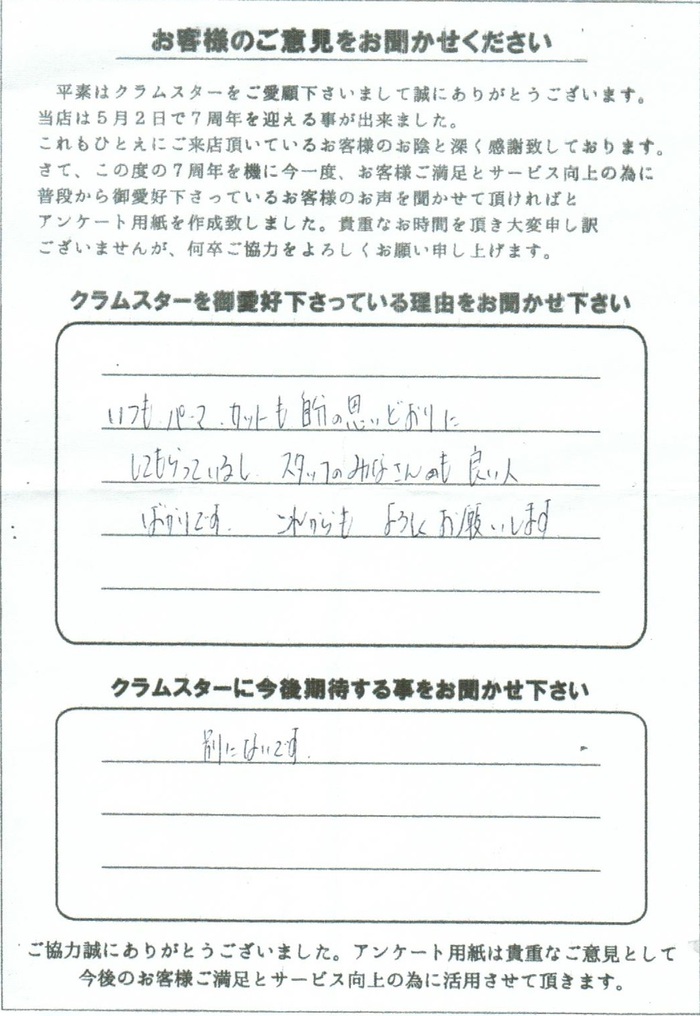 お客様のご意見をお聞かせください
平素はクラムスターをご愛顧下さいまして誠にありがとうございます。
当店は５月２日で７周年を迎える事が出来ました。
これもひとえにご来店頂いているお客様のお陰と深く感謝致しております。
さて、この度の７周年を機に今一度、お客様ご満足とサービス向上の為に
普段から御愛好下さっているお客様のお声を聞かせて頂ければと
アンケート用紙を作成致しました。貴重なお時間を頂き大変申し訳
ございませんが、何卒ご協力をよろしくお願い申し上げます。
クラムスターを御愛好下さっている理由をお聞かせ下さい
いつも、パーマ、カットも自分の思いどおりに
してもらっているし、スタッフのみなさんも良い人
ばかりです。これからもよろしくお願いします
クラムスターに今後期待する事をお聞かせ下さい
別にないです.
ご協力誠にありがとうございました。アンケート用紙は貴重なご意見として
今後のお客様ご満足とサービス向上の為に活用させて頂きます。